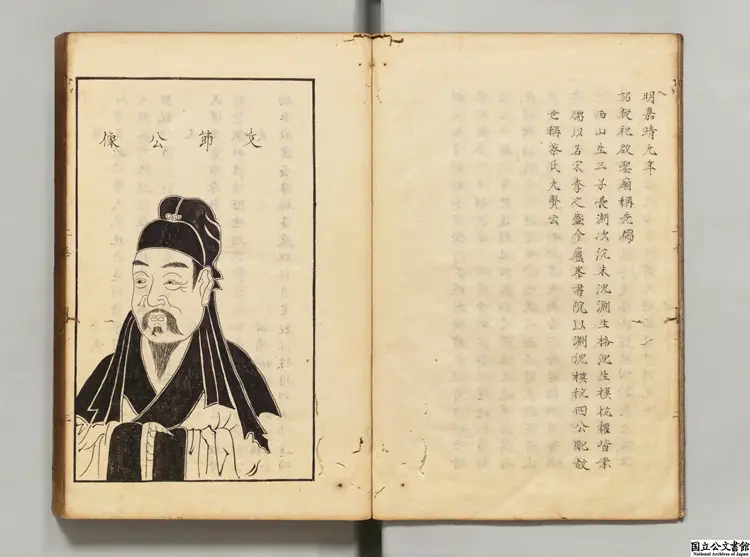 明嘉靖九年
詔從祀啟聖廟稱先儒
西山生三子長淵次沆末沈淵生格沈生模杭權皆業
儒以名宋季之盛今廬峯書院以淵沈模杭四公配故
世稱蔡氏九賢云
文節公像
国立公文書館
National Archives of Japan